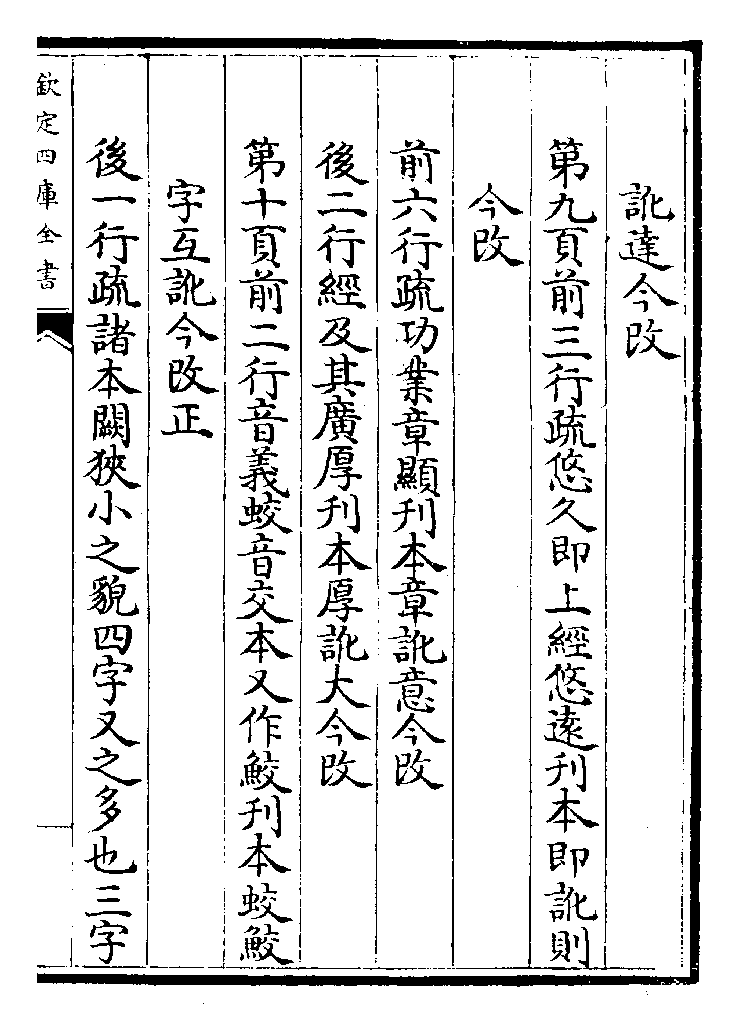 訛達今改
第九頁前三行疏悠久即上經悠遠刋本即訛則
今改
前六行疏功業章顯刋本章訛意今改
後二行經及其廣厚刋本厚訛大今改
第十頁前二行音義蛟音交本又作鮫刋本蛟鮫
字互訛今改正
後一行疏諸本闕狹小之貌四字又之多也三字
欽定四庫全書